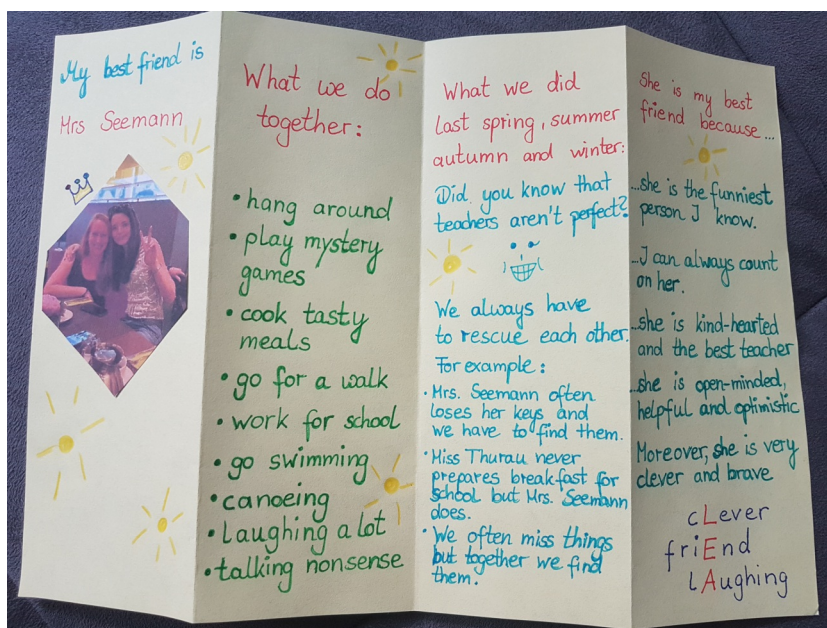 My best friend is
Mrs Seemann
What we do
together:
• hang around
• play mystery
games
• cook tasty
meals
• go for a walk
• work for school
• go swimming
• canoeing
• Laughing a lot
• talking nonsense
What we did
last spring, summer
autumn and winter:
Did you know that
teachers aren't perfect?
We always have
to rescue each other.
For example:
• Mrs. Seemann often
loses her keys and
we have to find them.
• Miss Thurau never
prepares breakfast for
school but Mrs. Seemann
does.
• We often miss things
but together we find
them.
She is my best
friend because...
...she is the funniest
person I know.
...I can always count
on her.
...she is kind-hearted
and the best teacher
...she is open-minded,
helpful and optimistic
Moreover, she is very
clever and brave
cLever
friEnd
lAughing